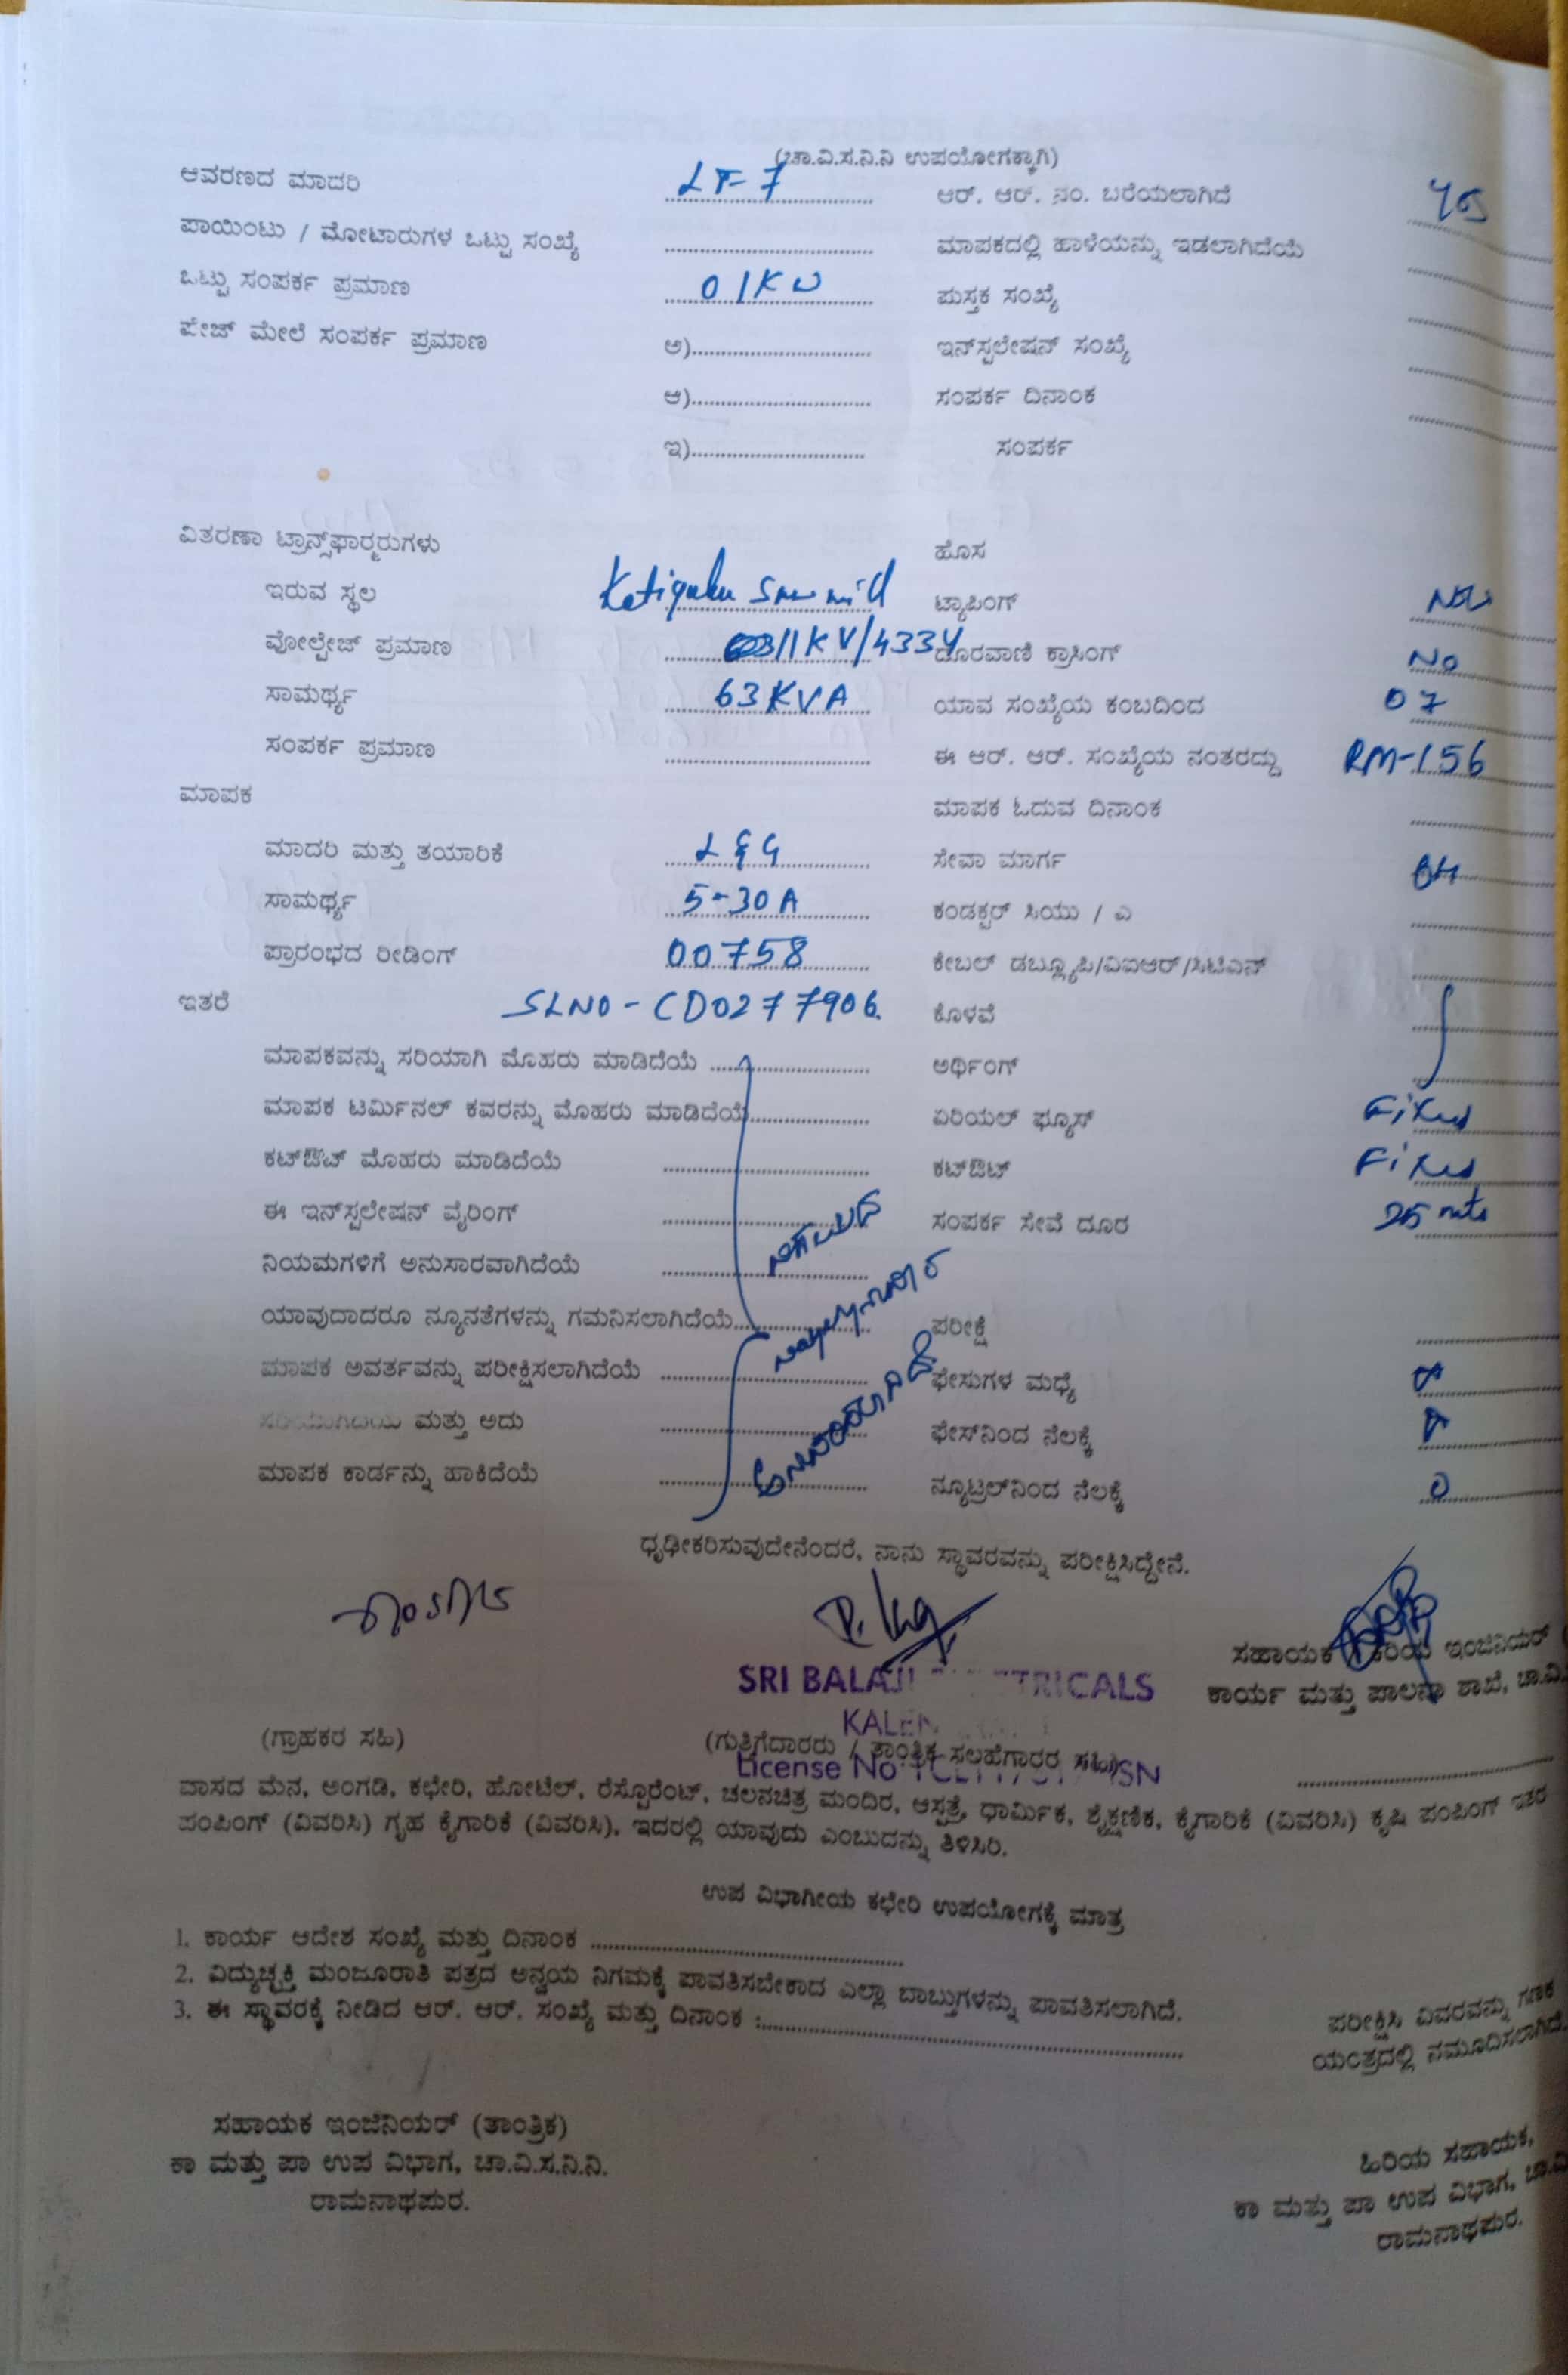 (ಚಾ.ವಿ.ಸ.ನಿ.ನಿ ಉಪಯೋಗಕ್ಕಾಗಿ)
ಆವರಣದ ಮಾದರಿ LT-7
ಪಾಯಿಂಟು / ಮೋಟಾರುಗಳ ಒಟ್ಟು ಸಂಖ್ಯೆ
ಒಟ್ಟು ಸಂಪರ್ಕ ಪ್ರಮಾಣ 01KW
ಪೇಜ್ ಮೇಲೆ ಸಂಪರ್ಕ ಪ್ರಮಾಣ ಅ)
ಆ)
ಇ)
ಆರ್. ಆರ್. ನಂ. ಬರೆಯಲಾಗಿದೆ yes
ಮಾಪಕದಲ್ಲಿ ಹಾಳೆಯನ್ನು ಇಡಲಾಗಿದೆಯೆ
ಪುಸ್ತಕ ಸಂಖ್ಯೆ
ಇನ್‌ಸ್ಪಲೇಷನ್ ಸಂಖ್ಯೆ
ಸಂಪರ್ಕ ದಿನಾಂಕ
ಸಂಪರ್ಕ
ವಿತರಣಾ ಟ್ರಾನ್ಸ್‌ಫಾರ್ಮರುಗಳು
ಇರುವ ಸ್ಥಲ
ವೋಲ್ಟೇಜ್ ಪ್ರಮಾಣ 11KV/433V
ಸಾಮರ್ಥ್ಯ 63KVA
ಸಂಪರ್ಕ ಪ್ರಮಾಣ
ಮಾಪಕ
ಮಾದರಿ ಮತ್ತು ತಯಾರಿಕೆ L&G
ಸಾಮರ್ಥ್ಯ 5-30A
ಪ್ರಾರಂಭದ ರೀಡಿಂಗ್ 00758
ಇತರೆ SLNO - CD0277906.
ಮಾಪಕವನ್ನು ಸರಿಯಾಗಿ ಮೊಹರು ಮಾಡಿದೆಯೆ
ಮಾಪಕ ಟರ್ಮಿನಲ್ ಕವರನ್ನು ಮೊಹರು ಮಾಡಿದೆಯೆ
ಕಟ್‌ಔಟ್ ಮೊಹರು ಮಾಡಿದೆಯೆ
ಈ ಇನ್‌ಸ್ಪಲೇಷನ್ ವೈರಿಂಗ್
ನಿಯಮಗಳಿಗೆ ಅನುಸಾರವಾಗಿದೆಯೆ
ಯಾವುದಾದರೂ ನ್ಯೂನತೆಗಳನ್ನು ಗಮನಿಸಲಾಗಿದೆಯೆ
ಮಾಪಕ ಅವರ್ತವನ್ನು ಪರೀಕ್ಷಿಸಲಾಗಿದೆಯೆ
ಸರಿಯಾಗಿದೆಯೆ ಮತ್ತು ಅದು
ಮಾಪಕ ಕಾರ್ಡನ್ನು ಹಾಕಿದೆಯೆ
ಹೊಸ
ಟ್ಯಾಪಿಂಗ್
ದೂರವಾಣಿ ಕ್ರಾಸಿಂಗ್ No
ಯಾವ ಸಂಖ್ಯೆಯ ಕಂಬದಿಂದ 07
ಈ ಆರ್. ಆರ್. ಸಂಖ್ಯೆಯ ನಂತರದ್ದು RM-156
ಮಾಪಕ ಓದುವ ದಿನಾಂಕ
ಸೇವಾ ಮಾರ್ಗ OH
ಕಂಡಕ್ಟರ್ ಸಿಯು / ಎ
ಕೇಬಲ್ ಡಬ್ಲ್ಯೂಪಿ/ವಿಐಆರ್/ಸಿಟಿಎನ್
ಕೊಳವೆ
ಅರ್ಥಿಂಗ್
ಏರಿಯಲ್ ಫ್ಯೂಸ್ Fixed
ಕಟ್‌ಔಟ್ Fixed
ಸಂಪರ್ಕ ಸೇವೆ ದೂರ 25 mts
ಪರೀಕ್ಷೆ
ಫೇಸುಗಳ ಮಧ್ಯೆ
ಫೇಸ್‌ನಿಂದ ನೆಲಕ್ಕೆ
ನ್ಯೂಟ್ರಲ್‌ನಿಂದ ನೆಲಕ್ಕೆ 0
ಧೃಢೀಕರಿಸುವುದೇನೆಂದರೆ, ನಾನು ಸ್ಥಾವರವನ್ನು ಪರೀಕ್ಷಿಸಿದ್ದೇನೆ.
SRI BALAJI
KALEN
License No
(ಗ್ರಾಹಕರ ಸಹಿ)
(ಗುತ್ತಿಗೆದಾರರು / ತಾಂತ್ರಿಕ ಸಲಹೆಗಾರರ ಸಹಿ)
ಸಹಾಯಕ ಇಂಜಿನಿಯರ್
ಕಾರ್ಯ ಮತ್ತು ಪಾಲನಾ ಶಾಖೆ, ಚಾ.ವಿ.
ವಾಸದ ಮನೆ, ಅಂಗಡಿ, ಕಛೇರಿ, ಹೋಟೆಲ್, ರೆಸ್ಟೊರೆಂಟ್, ಚಲನಚಿತ್ರ ಮಂದಿರ, ಆಸ್ಪತ್ರೆ, ಧಾರ್ಮಿಕ, ಶೈಕ್ಷಣಿಕ, ಕೈಗಾರಿಕೆ (ವಿವರಿಸಿ) ಕೃಷಿ ಪಂಪಿಂಗ್ ಇತರ
ಪಂಪಿಂಗ್ (ವಿವರಿಸಿ) ಗೃಹ ಕೈಗಾರಿಕೆ (ವಿವರಿಸಿ), ಇದರಲ್ಲಿ ಯಾವುದು ಎಂಬುದನ್ನು ತಿಳಿಸಿರಿ.
ಉಪ ವಿಭಾಗೀಯ ಕಛೇರಿ ಉಪಯೋಗಕ್ಕೆ ಮಾತ್ರ
1. ಕಾರ್ಯ ಆದೇಶ ಸಂಖ್ಯೆ ಮತ್ತು ದಿನಾಂಕ
2. ವಿದ್ಯುಚ್ಛಕ್ತಿ ಮಂಜೂರಾತಿ ಪತ್ರದ ಅನ್ವಯ ನಿಗಮಕ್ಕೆ ಪಾವತಿಸಬೇಕಾದ ಎಲ್ಲಾ ಬಾಬ್ತುಗಳನ್ನು ಪಾವತಿಸಲಾಗಿದೆ.
3. ಈ ಸ್ಥಾವರಕ್ಕೆ ನೀಡಿದ ಆರ್. ಆರ್. ಸಂಖ್ಯೆ ಮತ್ತು ದಿನಾಂಕ :
ಪರೀಕ್ಷಿಸಿ ವಿವರವನ್ನು ಗಣಕ
ಯಂತ್ರದಲ್ಲಿ ನಮೂದಿಸಲಾಗಿದೆ.
ಸಹಾಯಕ ಇಂಜಿನಿಯರ್ (ತಾಂತ್ರಿಕ)
ಕಾ ಮತ್ತು ಪಾ ಉಪ ವಿಭಾಗ, ಚಾ.ವಿ.ಸ.ನಿ.ನಿ.
ರಾಮನಾಥಪುರ.
ಹಿರಿಯ ಸಹಾಯಕ,
ಕಾ ಮತ್ತು ಪಾ ಉಪ ವಿಭಾಗ, ಚಾ.ವಿ
ರಾಮನಾಥಪುರ.